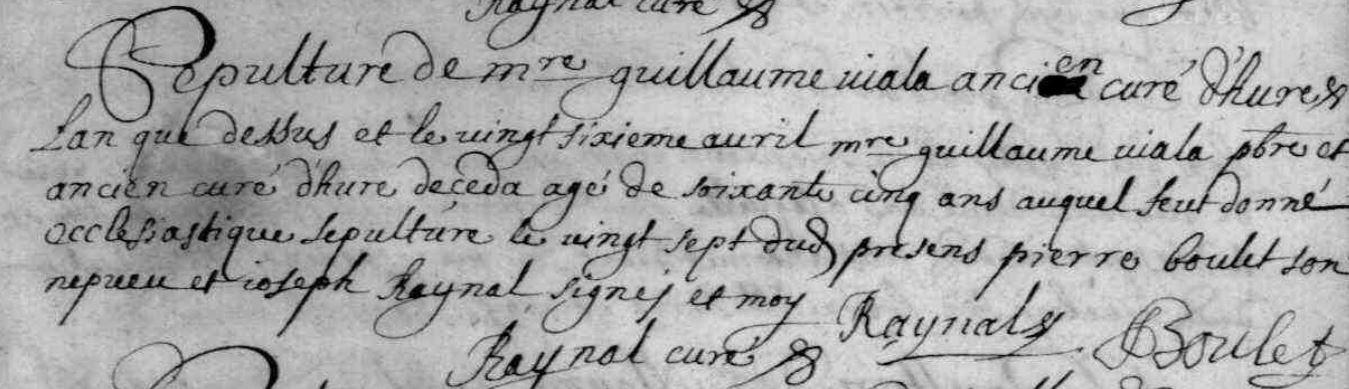 Raynal curé
Sepulture de mre guillaume uiala ancien curé d'hure
Lan que dessus et le uingt sixieme auril mre guillaume uiala pbre et
ancien curé d'hure deceda agé de soixante cinq ans auquel feut donné
ecclesiastique sepulture le uingt sept dud presens pierre boulet son
nepueu et ioseph Raynal signes et moy Raynal Boulet
Raynal curé